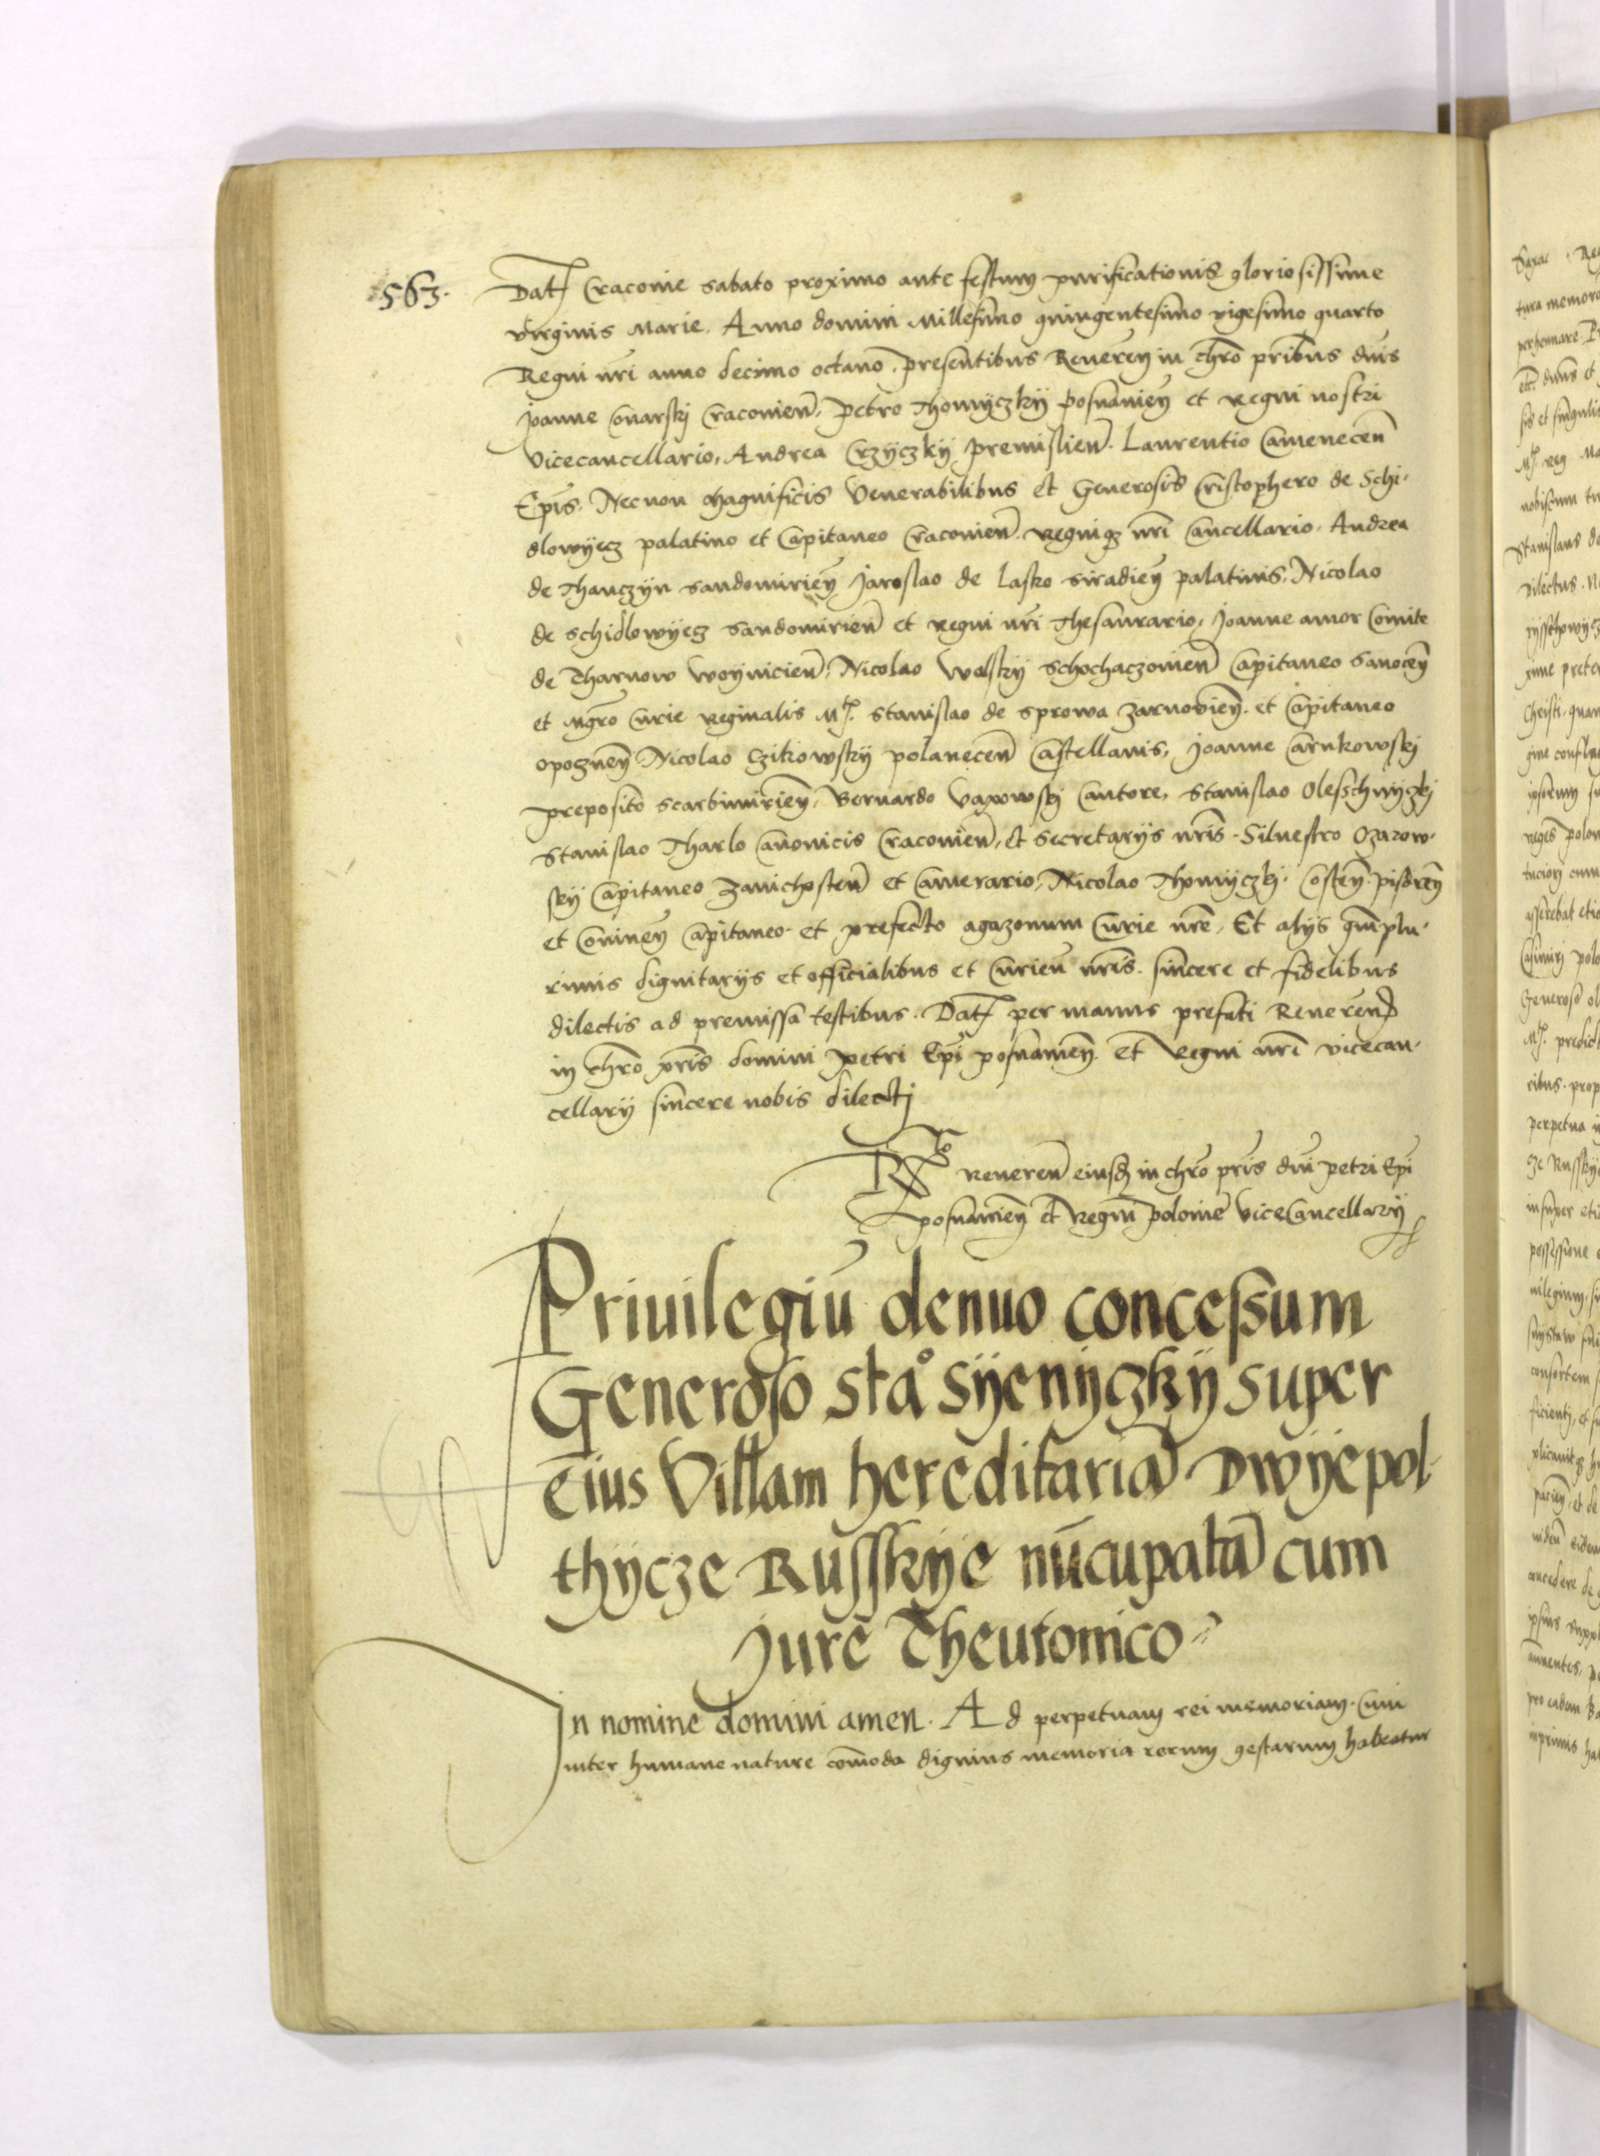 563.
Dat[um] Cracovie sabato proximo ante festum purificationis gloriosissime
virginis Marie. Anno domini Millesimo quingentesimo vigesimo quarto
Regni nri anno decimo octavo. presentibus Reveren in chro pribus dnis
Joanne Conarskj Cracovien, Petro Thomyczkÿ posnanien et regni nostri
vicecancellario, Andrea Crzyczkÿ premislien. Laurentio Camenecen
Epis. Necnon Magnificis Venerabilibus et Generosis Cristophero de Schi-
dlowyecz palatino et Capitaneo Cracovien. regniq nri Cancellario. Andrea
de Thanczÿn sandomirien Jaroslao de Lasko siradien palatinis. Nicolao
de Schidlowÿecz sandomirien et regni nri Thesaurario, Joanne amor Comite
de Tharnow woynicien, Nicolao Wolskÿ Schochaczovien Capitaneo Sanocen
et Mgro Curie reginalis Mtis. Stanislao de Sprowa Zarnovien. et Capitaneo
opoznen Nicolao Czikowskÿ polanecen Castellanis, Joanne Carnkowskj
preposito Scarbimirien, Bernardo Vapowskj Cantore, Stanislao Olesschnÿczkj
Stanislao Tharlo Canonicis Cracovien, et Secretarÿs nris. Silvestro Ozarow-
skÿ Capitaneo Zavichosten et Camerario, Nicolao Thomÿczkj. Costen. pisdren
et Coninen Capitaneo. et prefecto agazonum Curie nre, Et alÿs quplu-
rimis dignitarÿs et officialibus et Curien nris. sincere et fidelibus
dilectis ad premissa testibus. Dat per manus prefati Reverend
in chro pris domini Petri Epi posnanien. et Regni nri vicecan-
cellarÿ sincere nobis dilectj
Rlo reveren eiusd in chro pris dni petri Epi
posnanien et Regni polonie viceCancellarÿ
Privilegiu denuo concessum
Generoso Stao Sÿenÿczkÿ super
eius Villam hereditaria Dwÿepol-
thÿcze Russkÿe nucupata cum
Jure Theutonico
In nomine domini amen. Ad perpetuam rei memoriam. Cum
inter humane nature comoda dignius memoria rerum gestarum habeatur